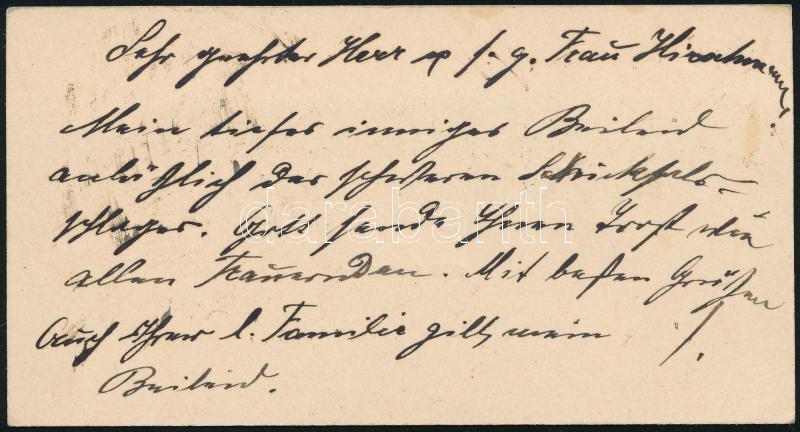 Sehr geehrter Herr u s. g. Frau Hirschmann.
Mein tiefes inniges Beileid
anläßlich des schweren Schicksals-
schlages. Gott sende Ihnen Trost wie
allen Trauernden. Mit besten Grüßen
Auch Ihrer l. Familie gilt mein
Beileid.
darabanth